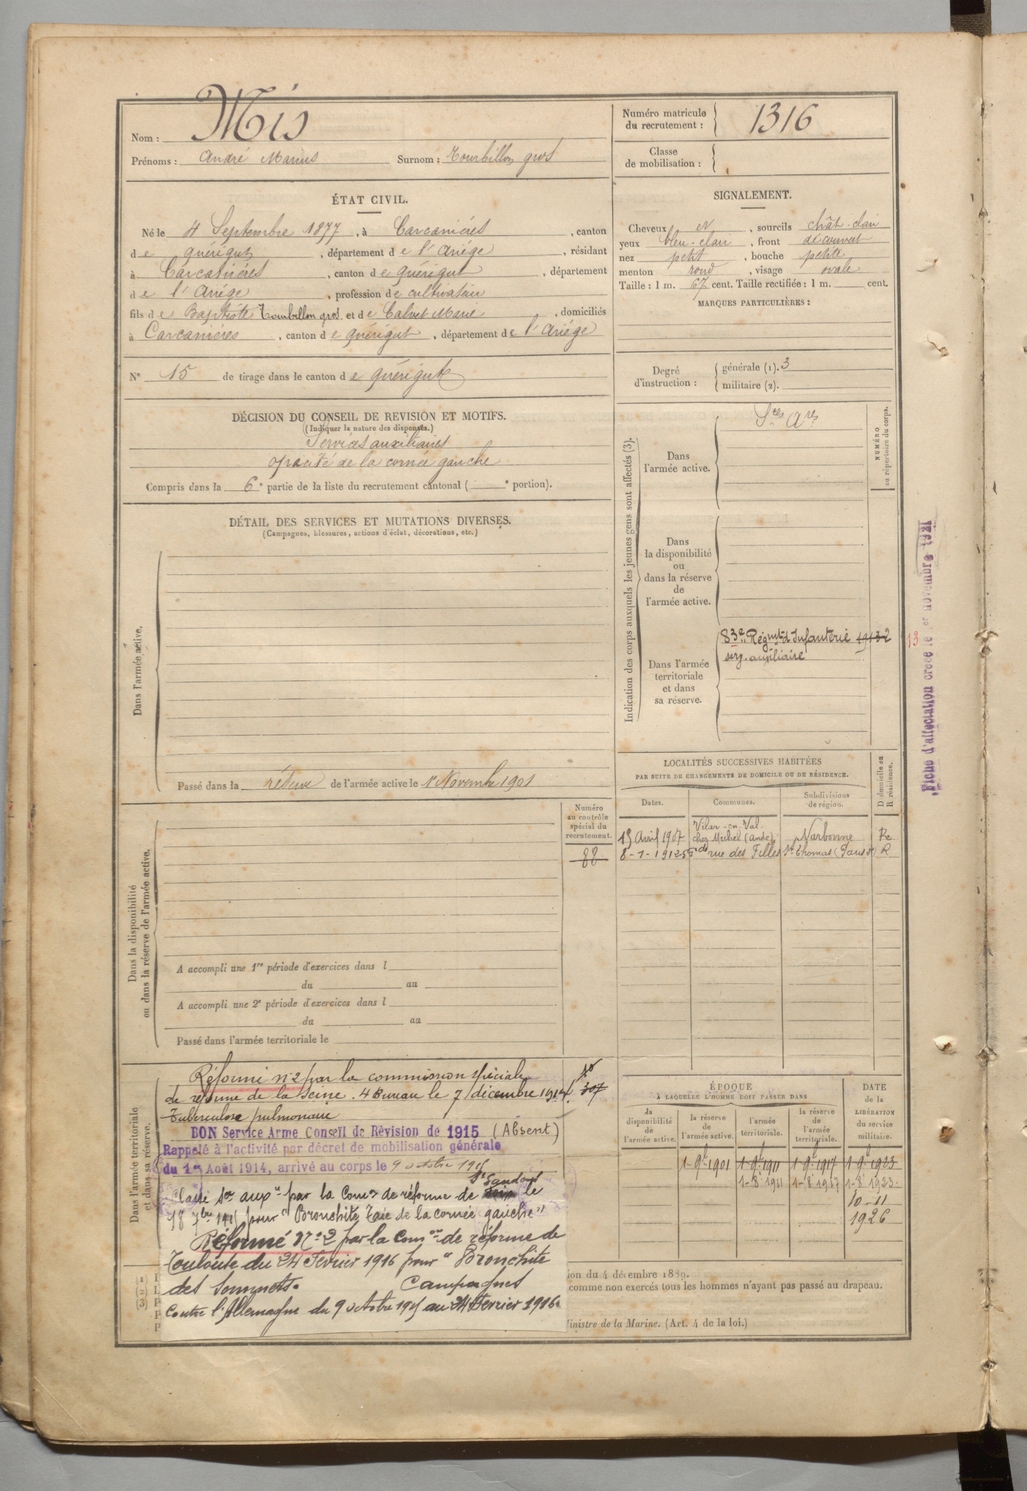 Nom : Mis
Prénoms : André Marius Surnom : Tourbillon gros
Numéro matricule du recrutement : 1316
Classe de mobilisation :
ÉTAT CIVIL.
Né le 4 Septembre 1877, à Carcanières, canton
de Quérigut, département de l'Ariége, résidant
à Carcanières, canton de Quérigut, département
de l'Ariége, profession de cultivateur
fils de Baptiste Tourbillon gros et de Calvet Marie, domiciliés
à Carcanières, canton de Quérigut, département de l'Ariége
N° 15 de tirage dans le canton de Quérigut
SIGNALEMENT.
Cheveux et, sourcils chât-clair
yeux bleu-clair, front découvert
nez petit, bouche petite
menton rond, visage ovale
Taille : 1 m. 67 cent. Taille rectifiée : 1 m. cent.
MARQUES PARTICULIÈRES :
Degré d'instruction : générale (1). 3
militaire (2).
DÉCISION DU CONSEIL DE REVISION ET MOTIFS.
(Indiquer la nature des dispenses.)
Services auxiliaires
opacité de la cornée gauche
Compris dans la 6e partie de la liste du recrutement cantonal ( e portion).
DÉTAIL DES SERVICES ET MUTATIONS DIVERSES.
(Campagnes, blessures, actions d'éclat, décorations, etc.)
Dans l'armée active.
Passé dans la réserve de l'armée active le 1er Novembre 1901
Indication des corps auxquels les jeunes gens sont affectés (3).
NUMÉRO au répertoire du corps.
Dans l'armée active.
Sces Ares
Dans la disponibilité ou dans la réserve de l'armée active.
Dans l'armée territoriale et dans sa réserve.
83e Régmt d'Infanterie
serv. auxiliaire
13
Fiche d'affectation créée le 1er Novembre 1921
LOCALITÉS SUCCESSIVES HABITÉES
PAR SUITE DE CHANGEMENTS DE DOMICILE OU DE RÉSIDENCE.
Dates. Communes. Subdivisions de région. D domicile ou R résidence.
15 Avril 1907 Vilar-en-Val chez Michel (Aude) Narbonne Re
8-1-1912 rue des Filles St Thomas R
Dans la disponibilité ou dans la réserve de l'armée active.
Numéro au contrôle spécial du recrutement.
88
A accompli une 1re période d'exercices dans l
du au
A accompli une 2e période d'exercices dans l
du au
Passé dans l'armée territoriale le
Dans l'armée territoriale et dans sa réserve.
Réformé n°2 par la commission spéciale
de réforme de la Seine. 4 Bureau le 7 décembre 1914
Tuberculose pulmonaire
BON Service Armé Conseil de Révision de 1915 (Absent)
Rappelé à l'activité par décret de mobilisation générale
du 1er Août 1914, arrivé au corps le 9 octobre 1915
Classé Ser auxre par la Comon de réforme de St Gaudens le
18 9bre 1915 pour "Bronchite, Taie de la cornée gauche"
Réformé N°2 par la Comon de réforme de
Toulouse du 24 Février 1916 pour "Bronchite
des Sommets. Campagnes
Contre l'Allemagne du 9 octobre 1915 au 24 Février 1916
ÉPOQUE
À LAQUELLE L'HOMME DOIT PASSER DANS
la disponibilité de l'armée active. la réserve de l'armée active. l'armée territoriale. la réserve de l'armée territoriale.
DATE de la LIBÉRATION du service militaire.
1-9bre 1901 1-9bre 1911 1-9bre 1917 1-9bre 1923
1-8bre 1911 1-8bre 1917 1-8bre 1923
10-11
1926
ion du 4 décembre 1889.
comme non exercés tous les hommes n'ayant pas passé au drapeau.
Ministre de la Marine. (Art. 4 de la loi.)